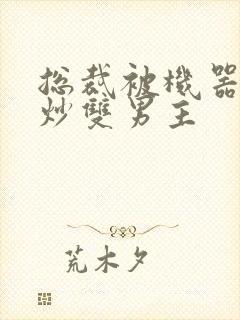 总裁被機器
炒雙男主
荒木夕